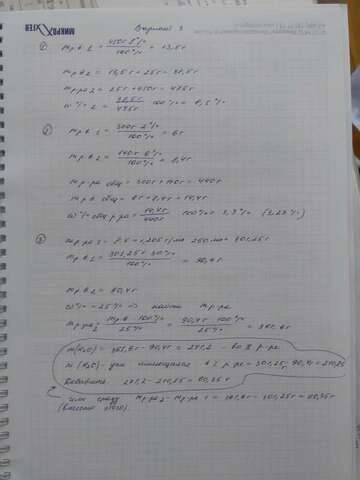 МИКРОТЕН
Вариант 3
m р.в 1 = 450г·3% / 100% = 13,5г
m р.в 2 = 13,5г + 25г = 38,5г
m р.ра 2 = 25г + 450г = 475г
w% 2 = 38,5г / 475г · 100% = 8,1%
m р.в 1 = 300г·2% / 100% = 6г
m р.в 2 = 140г·6% / 100% = 8,4г
m р-ра общ = 300г + 140г = 440г
m р.в общ = 6г + 8,4г = 14,4г
w% общ р.ра = 14,4г / 440г · 100% = 3,3% (3,27%)
m р.ра 1 = 1,205г/мл · 250мл = 301,25г
m р.в 1 = 301,25г·30% / 100% = 90,4г
m р.в 2 = 90,4г
w% = 25% найти m р-ра
m р.ра 2 = m р.в · 100% / 25% = 90,4г·100% / 25% = 361,6г
m(H2O) = 361,6г - 90,4г = 271,2 - во II р-ре
m(H2O) - уже имеющаяся в 1 р-ре = 301,25г - 90,4г = 210,85
Добавить 271,2 - 210,85 = 60,35г
или сразу m р.ра 2 - m р.ра 1 = 361,6г - 301,25г = 60,35г